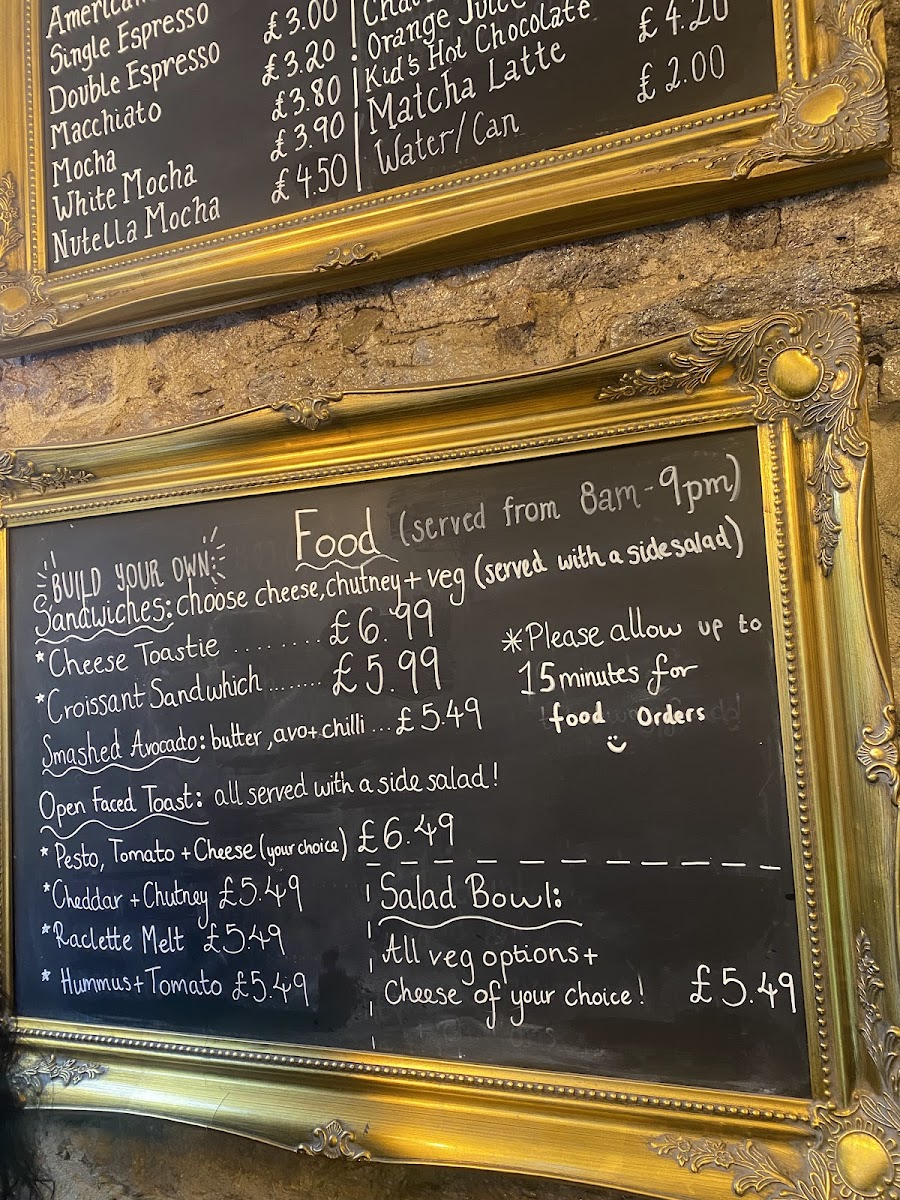 Single Espresso
Double Espresso £3.00
Macchiato £3.20
Mocha £3.80
White Mocha £3.90
Nutella Mocha £4.50
Orange Juice
Kid's Hot Chocolate
Matcha Latte £4.20
Water/Can £2.00
Food (served from 8am-9pm)
BUILD YOUR OWN:
Sandwiches: choose cheese, chutney + veg (served with a side salad)
*Cheese Toastie ........ £6.99
*Croissant Sandwhich ....... £5.99
Smashed Avocado: butter, avo + chilli ... £5.49
*Please allow up to
15 minutes for
food Orders
Open Faced Toast: all served with a side salad!
* Pesto, Tomato + Cheese (your choice) £6.49
*Cheddar + Chutney £5.49
*Raclette Melt £5.49
* Hummus + Tomato £5.49
Salad Bowl:
All veg options +
Cheese of your choice! £5.49